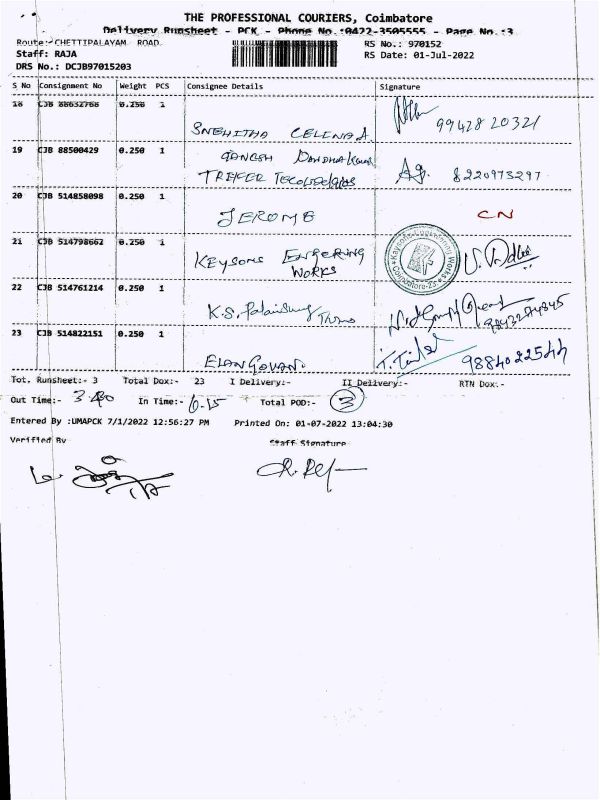 THE PROFESSIONAL COURIERS, Coimbatore
Delivery Runsheet - PCK - Phone No.:0422-3505555 - Page No.:3
Route:- CHETTIPALAYAM ROAD
RS No.: 970152
Staff: RAJA
RS Date: 01-Jul-2022
DRS No.: DCJB97015203
S No Consignment No Weight PCS Consignee Details Signature
18 CJB 88632768 0.250 1
SNEHITHA CELINA A 9942820321
19 CJB 88500429 0.250 1
20 CJB 514858098 0.250 1
JEROME CN
21 CJB 514798662 0.250 1
WORKS
22 CJB 514761214 0.250 1
K.S.
23 CJB 514822151 0.250 1
ELANGOVAN. 9884022544
8220973297
Tot. Runsheet:- 3 Total Dox:- 23 I Delivery:- II Delivery:- RTN Dox:-
Out Time:- In Time:- 6.15 Total POD:- 3
Entered By :UMAPCK 7/1/2022 12:56:27 PM Printed On: 01-07-2022 13:04:30
Verified By Staff Signature